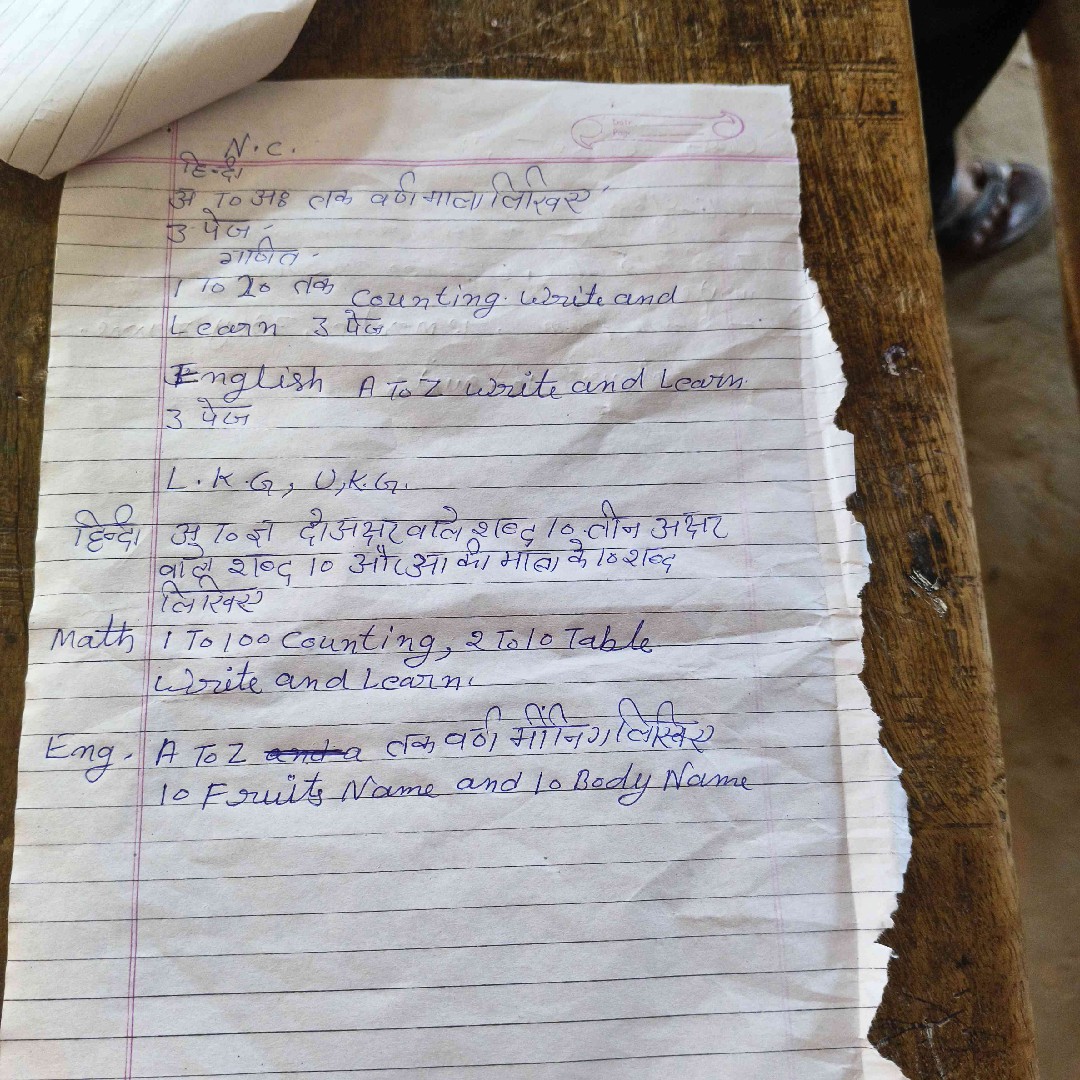 N.C.
हिन्दी
अ To अः तक वर्णमाला लिखिए
3 पेज -
गणित -
1 To 20 तक counting. Write and
Learn 3 पेज
English A To Z write and Learn.
3 पेज
L.K.G, U.K.G.
हिन्दी अ To ज्ञ दो अक्षर वाले शब्द 10 तीन अक्षर
वाले शब्द 10 और आ की मात्रा के 10 शब्द
लिखिए
Math 1 To 100 Counting, 2 To 10 Table
Write and Learn.
Eng. A To Z तक वर्ण मीनिंग लिखिए
10 Fruits Name and 10 Body Name